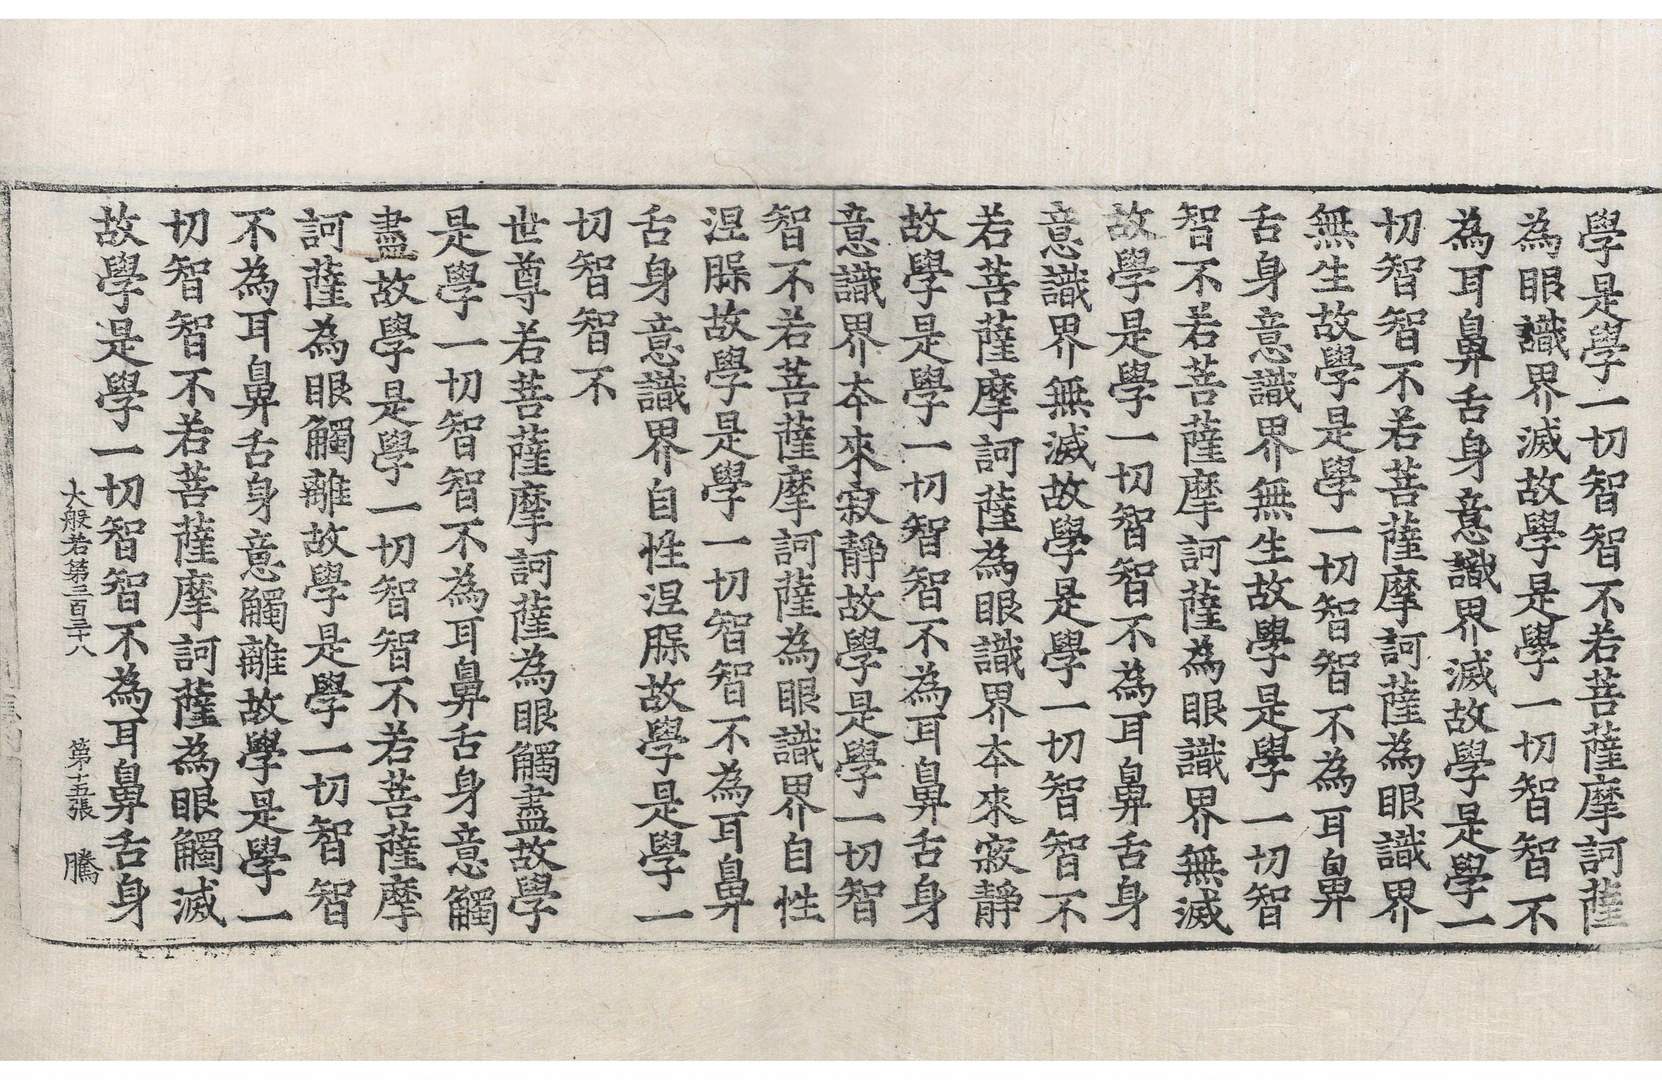 學是學一切智智不若菩薩摩訶薩
為眼識界滅故學是學一切智智不
為耳鼻舌身意識界滅故學是學一
切智智不若菩薩摩訶薩為眼識界
無生故學是學一切智智不為耳鼻
舌身意識界無生故學是學一切智
智不若菩薩摩訶薩為眼識界無滅
故學是學一切智智不為耳鼻舌身
意識界無滅故學是學一切智智不
若菩薩摩訶薩為眼識界本來寂靜
故學是學一切智智不為耳鼻舌身
意識界本來寂靜故學是學一切智
智不若菩薩摩訶薩為眼識界自性
涅槃故學是學一切智智不為耳鼻
舌身意識界自性涅槃故學是學一
切智智不
世尊若菩薩摩訶薩為眼觸盡故學
是學一切智智不為耳鼻舌身意觸
盡故學是學一切智智不若菩薩摩
訶薩為眼觸離故學是學一切智智
不為耳鼻舌身意觸離故學是學一
切智智不若菩薩摩訶薩為眼觸滅
故學是學一切智智不為耳鼻舌身
大般若第三百三十八 第十五張 騰